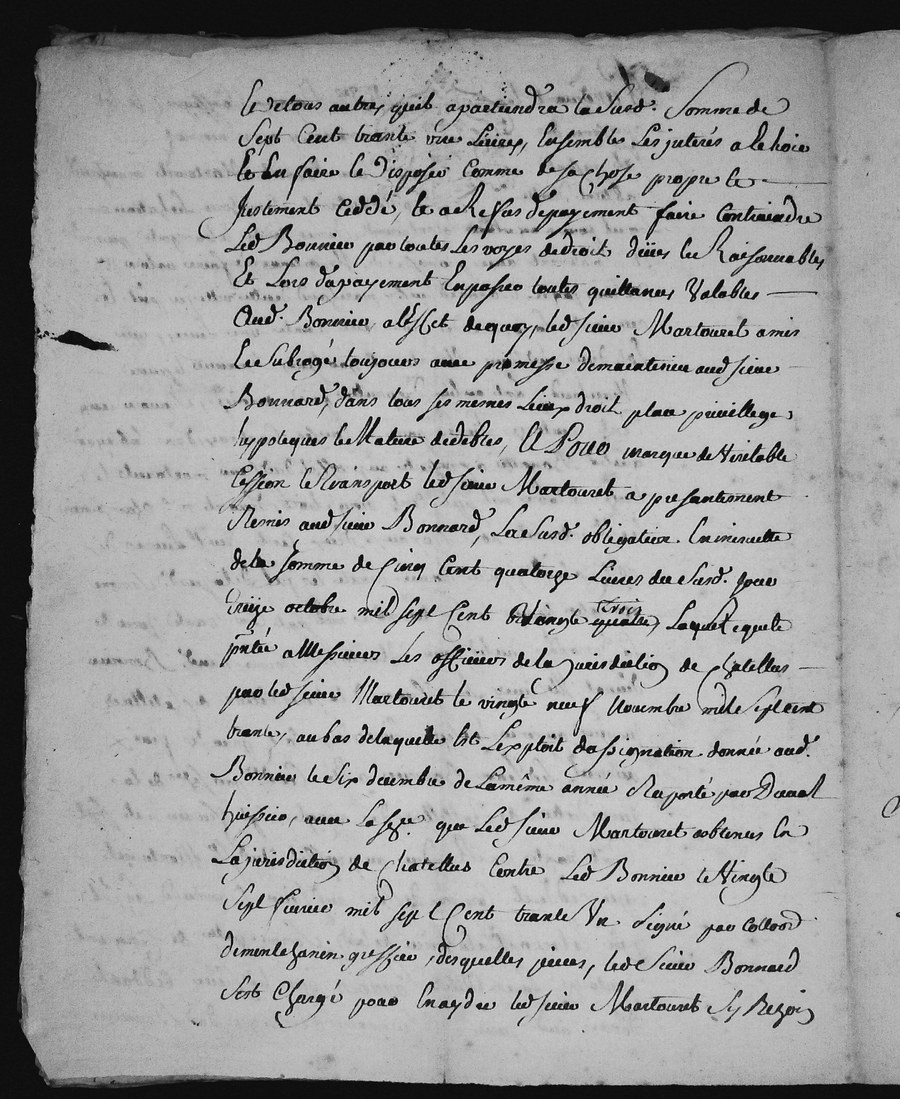 et de tous autres quil apartiendra la Susd. Somme de
Sept Cent trante une Livres, Ensemble Les jnterés a Echoir
Et En faire Et Disposér Comme de sa Chose propre Et
justement Ceddé, Et a Refus de payement faire Contraindre
Led Bonnier par toutes Les voyes de droit düés Et Raisonnables
Et Lors du payement En passer toutes quittances Valables
Aud. Bonnier, a l'Effet de quoy, led sieur Martouret a mis
Et Subrogé toujours avec promesse de maintenir aud sieur
Bonnard, dans tous ses mêmes Lieux droit place privillege,
hypoteques Et Nature de debtes, Et Pour marque de Véritable
Cession Et transport led sieur Martouret a presantement
Remis aud sieur Bonnard, La Susd. obligation En minutte
de la somme de Cinq Cent quatorze Livres du Susd. jour
treize octobre mil sept Cent Vingte trois quatre, La Requete
pntée a Messieurs Les officiers de la jurisdiction de Chatellus
par led sieur Martouret le vingte neuf Novembre mil sept cent
trante, au bas de laquelle Est L'exploit d'assignation donnée aud.
Bonnier le Six decembre de La même année Raporté par Duval
huissier, avec La sce. que Led sieur Martouret obtenus En
La jurisdiction de Chatellus Contre Led Bonnier le Vingte
Sept fevrier mil sept Cent trante Un Signé par
greffier, desquelles pieces, led Sieur Bonnard
s'est Chargé pour En aydér led sieur Martouret Sy Bezoin